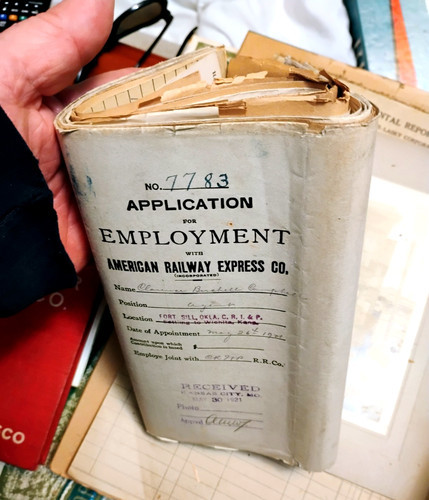 NO. 7783
APPLICATION
FOR
EMPLOYMENT
WITH
AMERICAN RAILWAY EXPRESS CO.
(INCORPORATED)
Name
Position
Location FORT SILL, OKLA. C. R. I. & P.
Date of Appointment May
Amount upon which
Commission is based $
Employe Joint with R.R. Co.
RECEIVED
KANSAS CITY, MO.
30 1921
Photo
ENTAL REPOR
LASKY CORPORAT
CO